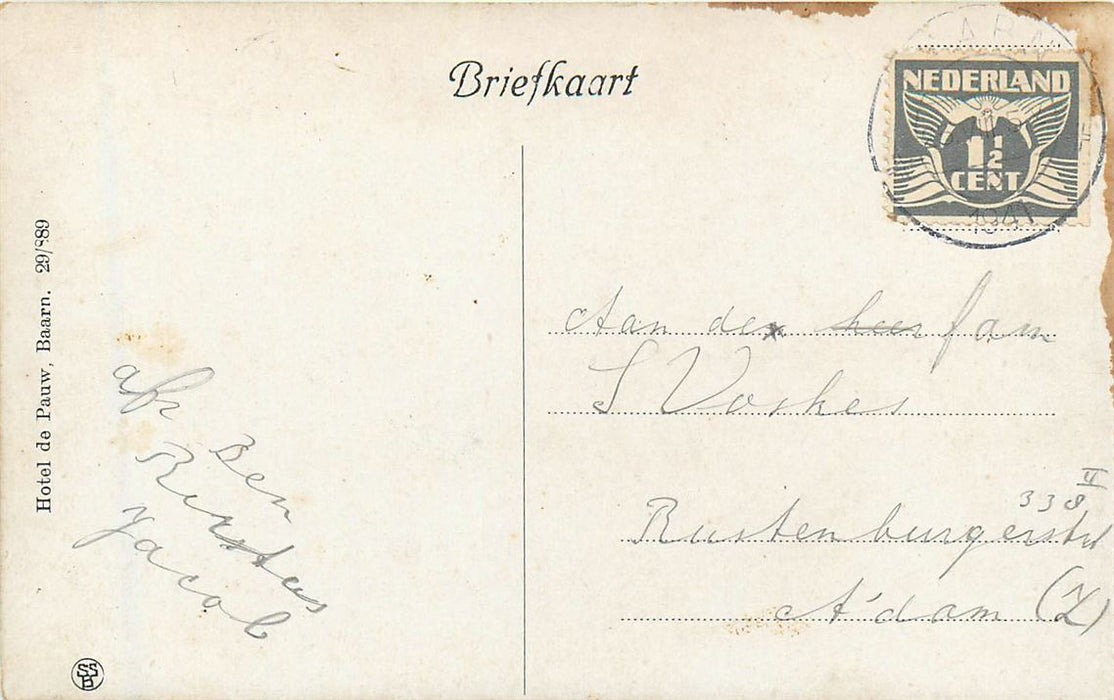 Briefkaart
NEDERLAND
1½
CENT
BAARN
1941
Hotel de Pauw, Baarn. 29/889
afz Ben
Jacob
Aan den heer fam
S Voskes
338 II
Rustenburgerstr
A'dam (Z)
SSB